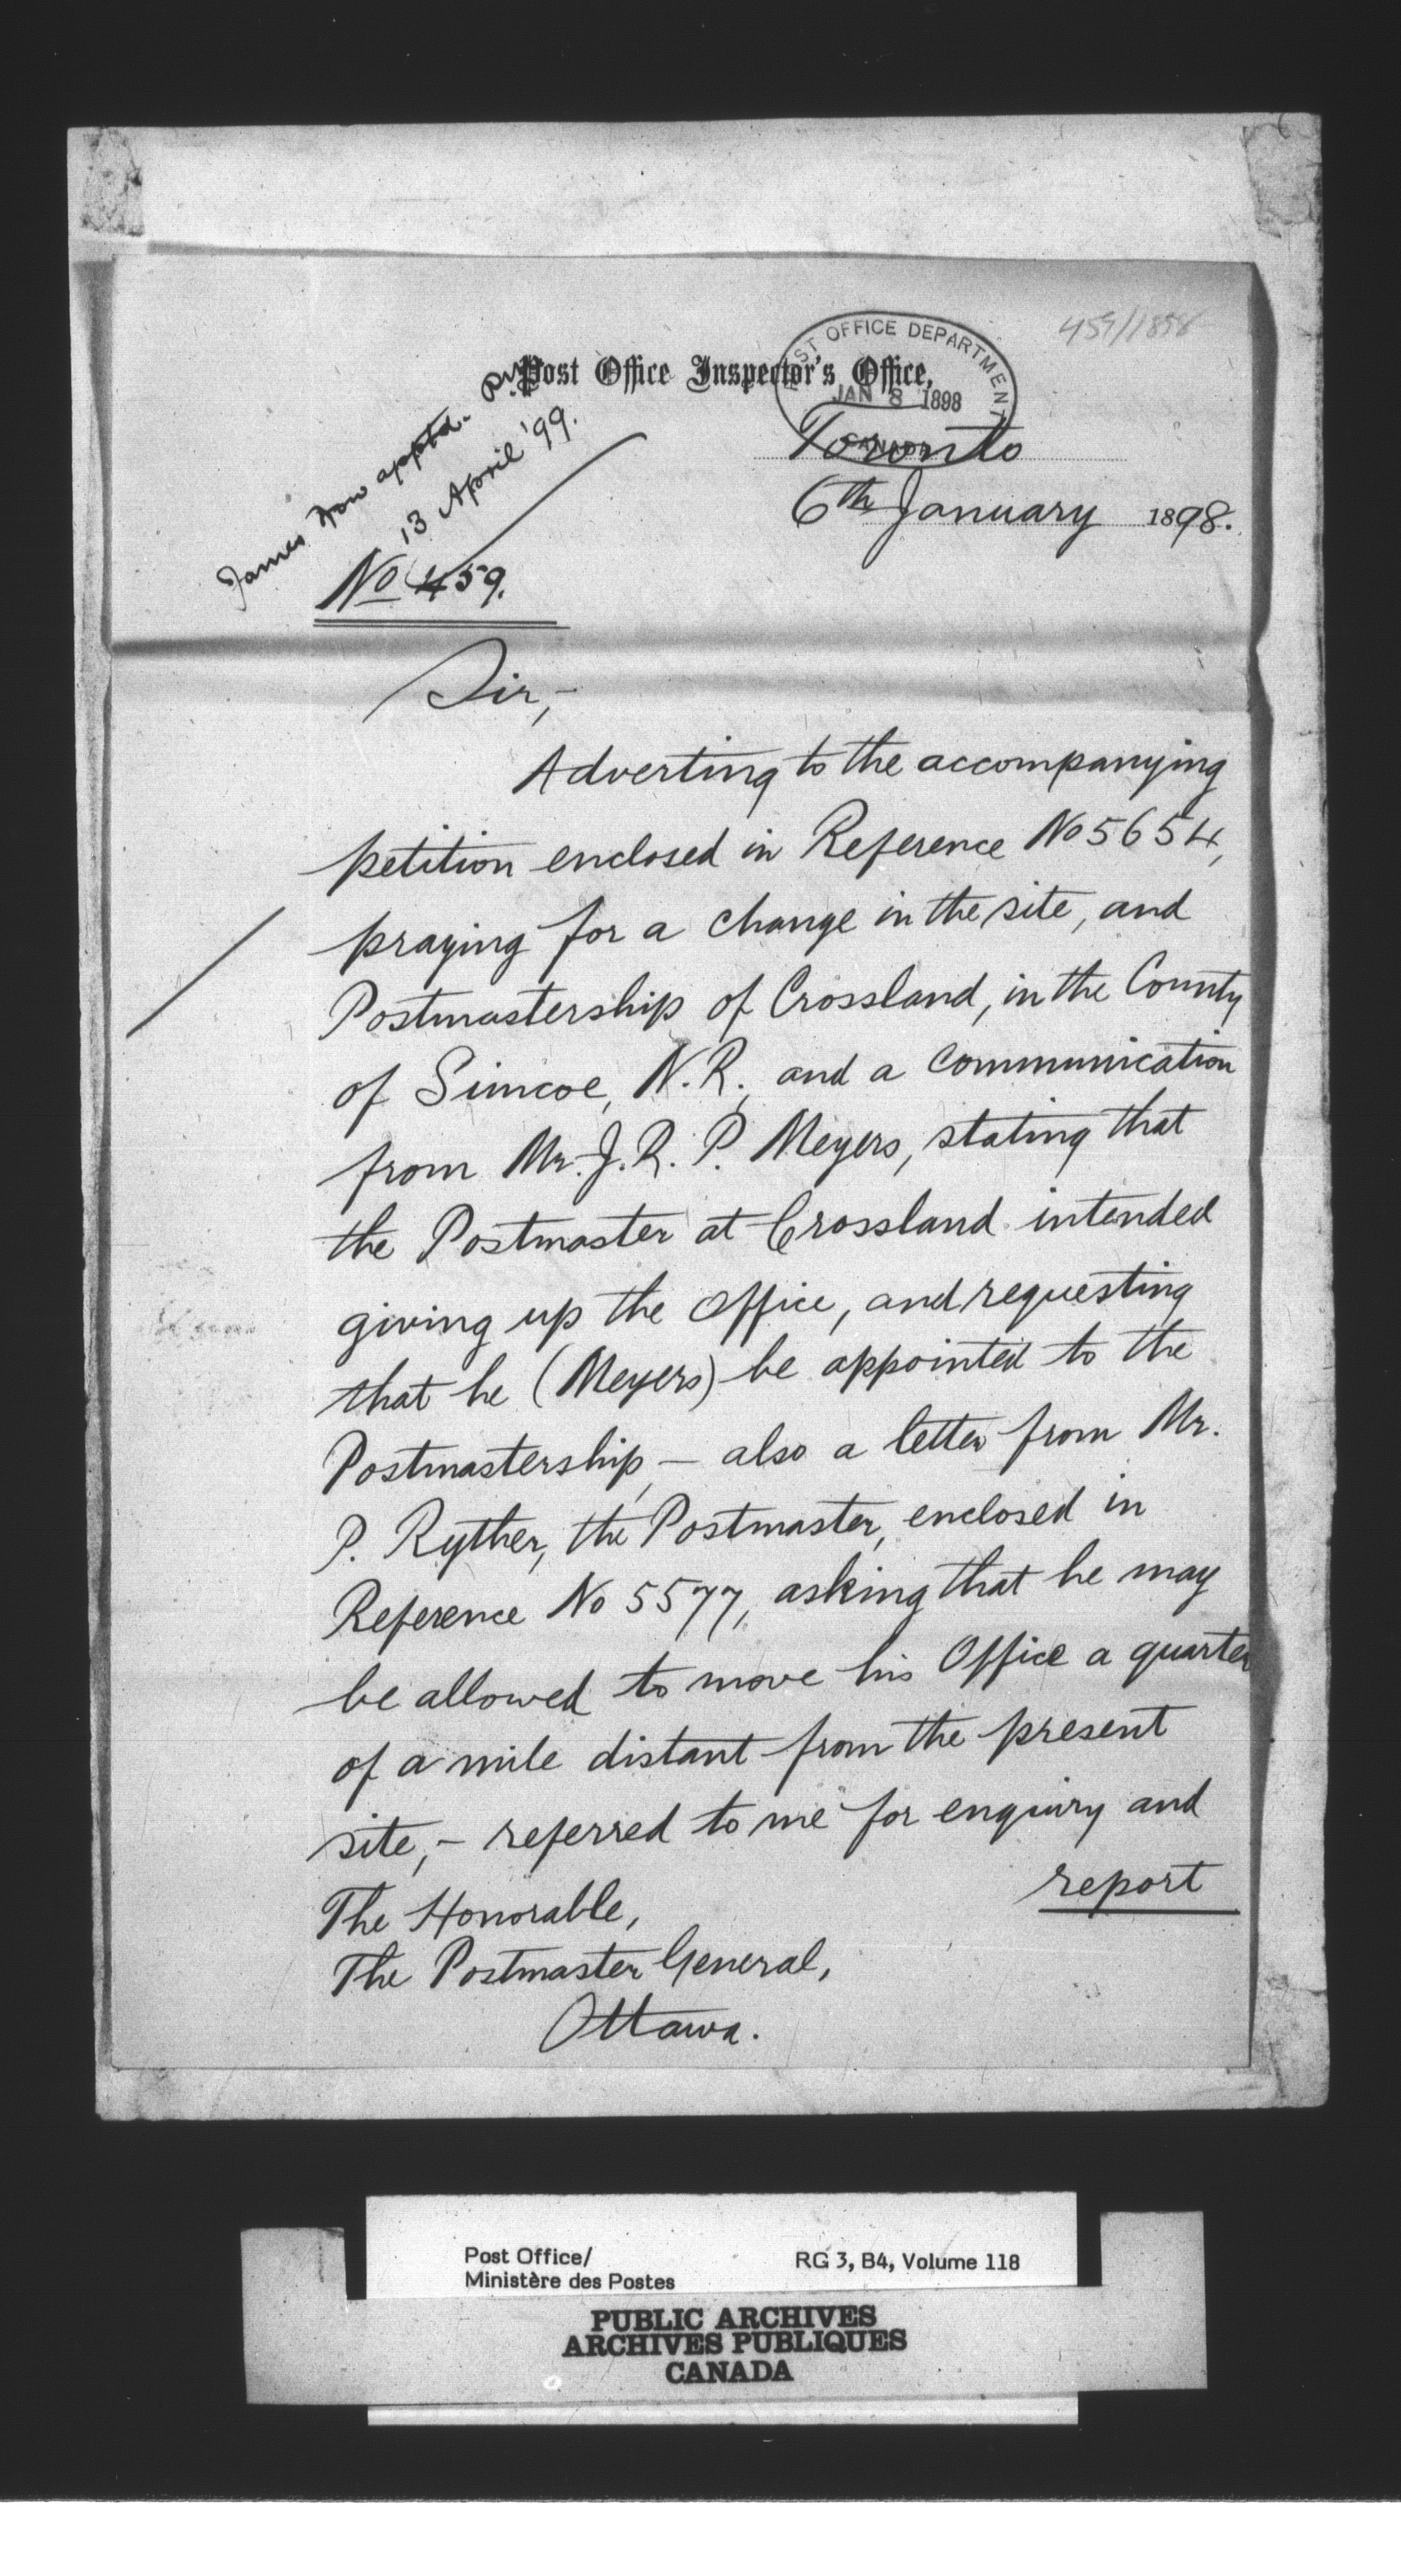 459/1898
Post Office Inspector's Office,
POST OFFICE DEPARTMENT
JAN 8 1898
CANADA
Toronto
6th January 1898.
James now apptd.
13 April '99.
No 459.
Sir,-
Adverting to the accompanying
petition enclosed in Reference No 5654,
praying for a change in the site, and
Postmastership of Crossland, in the County
of Simcoe, N.R., and a communication
from Mr. J.R.P. Meyers, stating that
the Postmaster at Crossland intended
giving up the Office, and requesting
that he (Meyers) be appointed to the
Postmastership, – also a letter from Mr.
P. Ryther, the Postmaster, enclosed in
Reference No 5577, asking that he may
be allowed to move his Office a quarter
of a mile distant from the present
site, – referred to me for enquiry and
report
The Honorable,
The Postmaster General,
Ottawa.
Post Office/
Ministère des Postes
RG 3, B4, Volume 118
PUBLIC ARCHIVES
ARCHIVES PUBLIQUES
CANADA